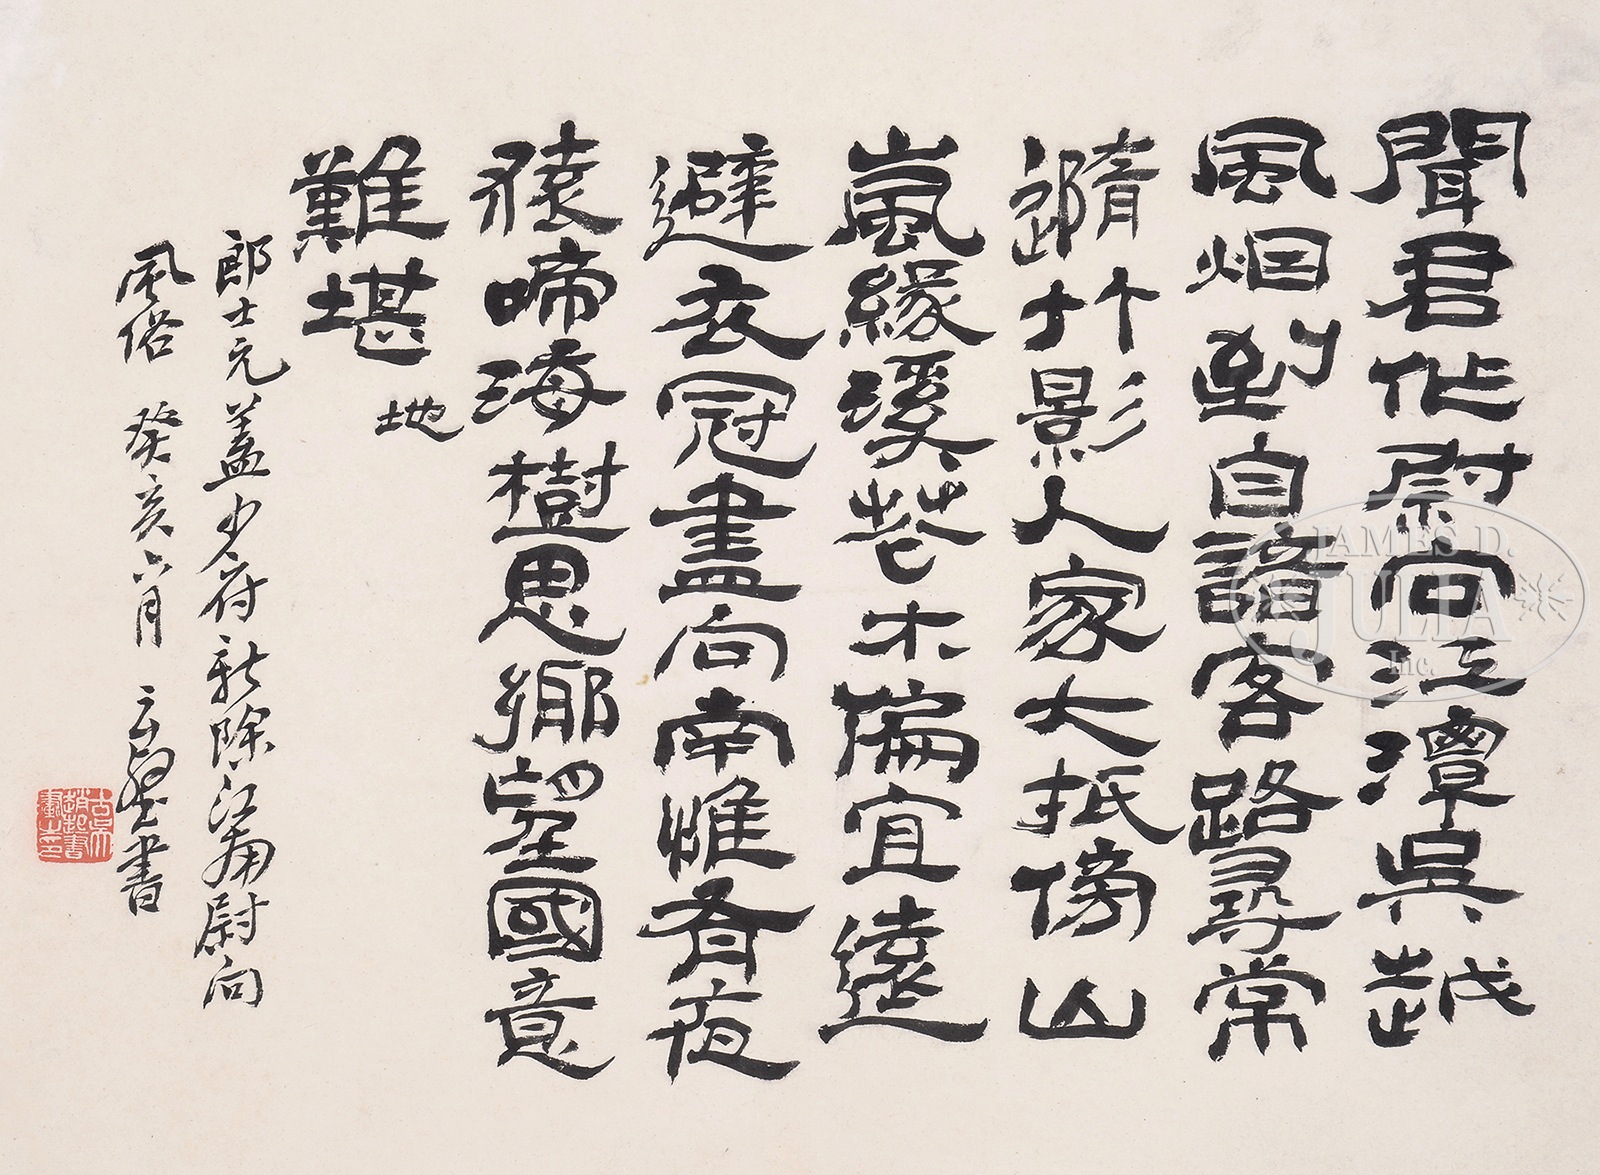 聞君作尉向江潭吳越
風烟到自諳客路尋常
隨竹影人家大抵傍山
嵐緣溪花木偏宜遠
避衣冠盡向南惟有夜
猿啼海樹思鄉望國意
難堪 地
郎士元蓋少府新除江南尉向
風俗 癸亥六月 書
JAMES D.
JULIA
Inc.